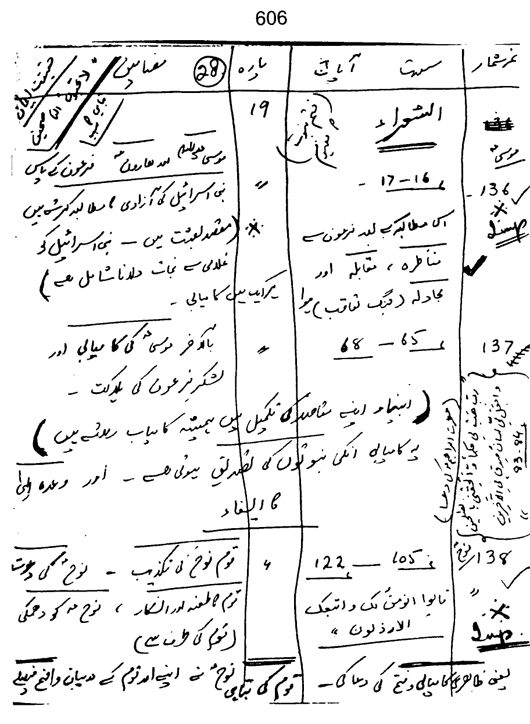 606
نمبر شمار سورت آیات پارہ 28 مضامین
الشعراء 19
موسیٰؑ
136 16-17 " موسیٰ علیہ السلام اور ھارونؑ فرعون کے پاس
بنی اسرائیل کی آزادی کا مطالبہ کرتے ہیں
Imp اس مطالبہ کے بعد فرعون سے (مقصد بعثت میں - بنی اسرائیل کو
مناظرہ، مقابلہ اور غلامی سے نجات دلانا شامل ھے)
مجادلہ (جنگ تعاقب) ہوا ہر ایک میں کامیابی -
137 65-68 " بالآخر موسیٰؑ کی کامیابی اور
لشکر فرعون کی ہلاکت -
(انبیاء اپنے مقاصد کی تکمیل میں ہمیشہ کامیاب رہتے ہیں)
یہ کامیابی انکی نبوتوں کی تصدیق ہوتی ھے - اور وعدہ الٰہی
کا ایفاء
83-84
138 نوحؑ 105-122 " قوم نوحؑ کی تکذیب - نوحؑ کی دعوت
قالوا انؤمن لک واتبعک قوم کا طعنہ اور انکار، نوحؑ کو دھمکی
Imp الارذلون " (قوم کی طرف سے)
نوحؑ نے اپنے اور قوم کے درمیان واضح فیصلے
یعنی ظاہری کامیابی و فتح کی دعا کی - قوم کی تباہی